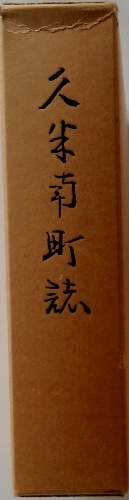 久米南町誌